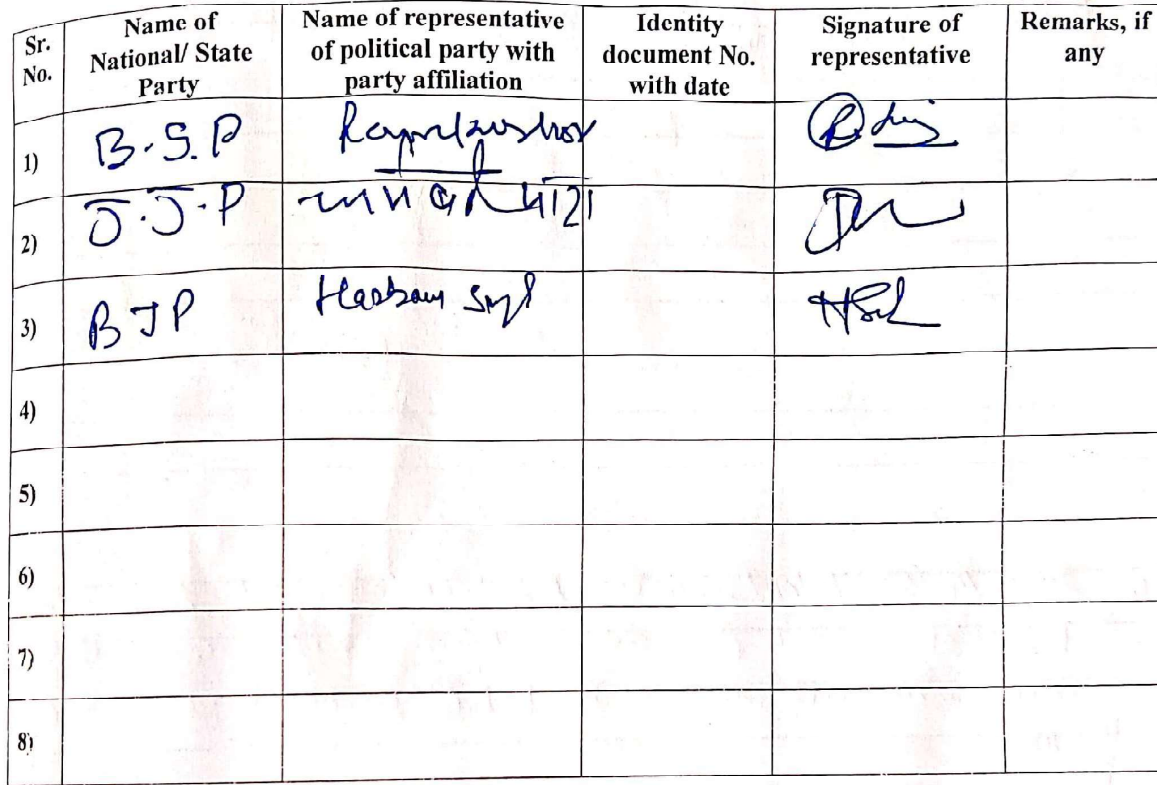 Sr. No.
Name of National/ State Party
Name of representative of political party with party affiliation
Identity document No. with date
Signature of representative
Remarks, if any
1) B.S.P
2) J.J.P
3) BJP
4)
5)
6)
7)
8)